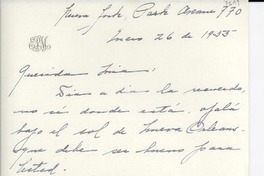 Nueva York, Park Avenue 770
Enero 26 de 1955
Querida mia:
Dia a dia la recuerdo,
no sé donde está, ojalá
bajo el sol de Nueva Orleans
que debe ser bueno para
Usted.